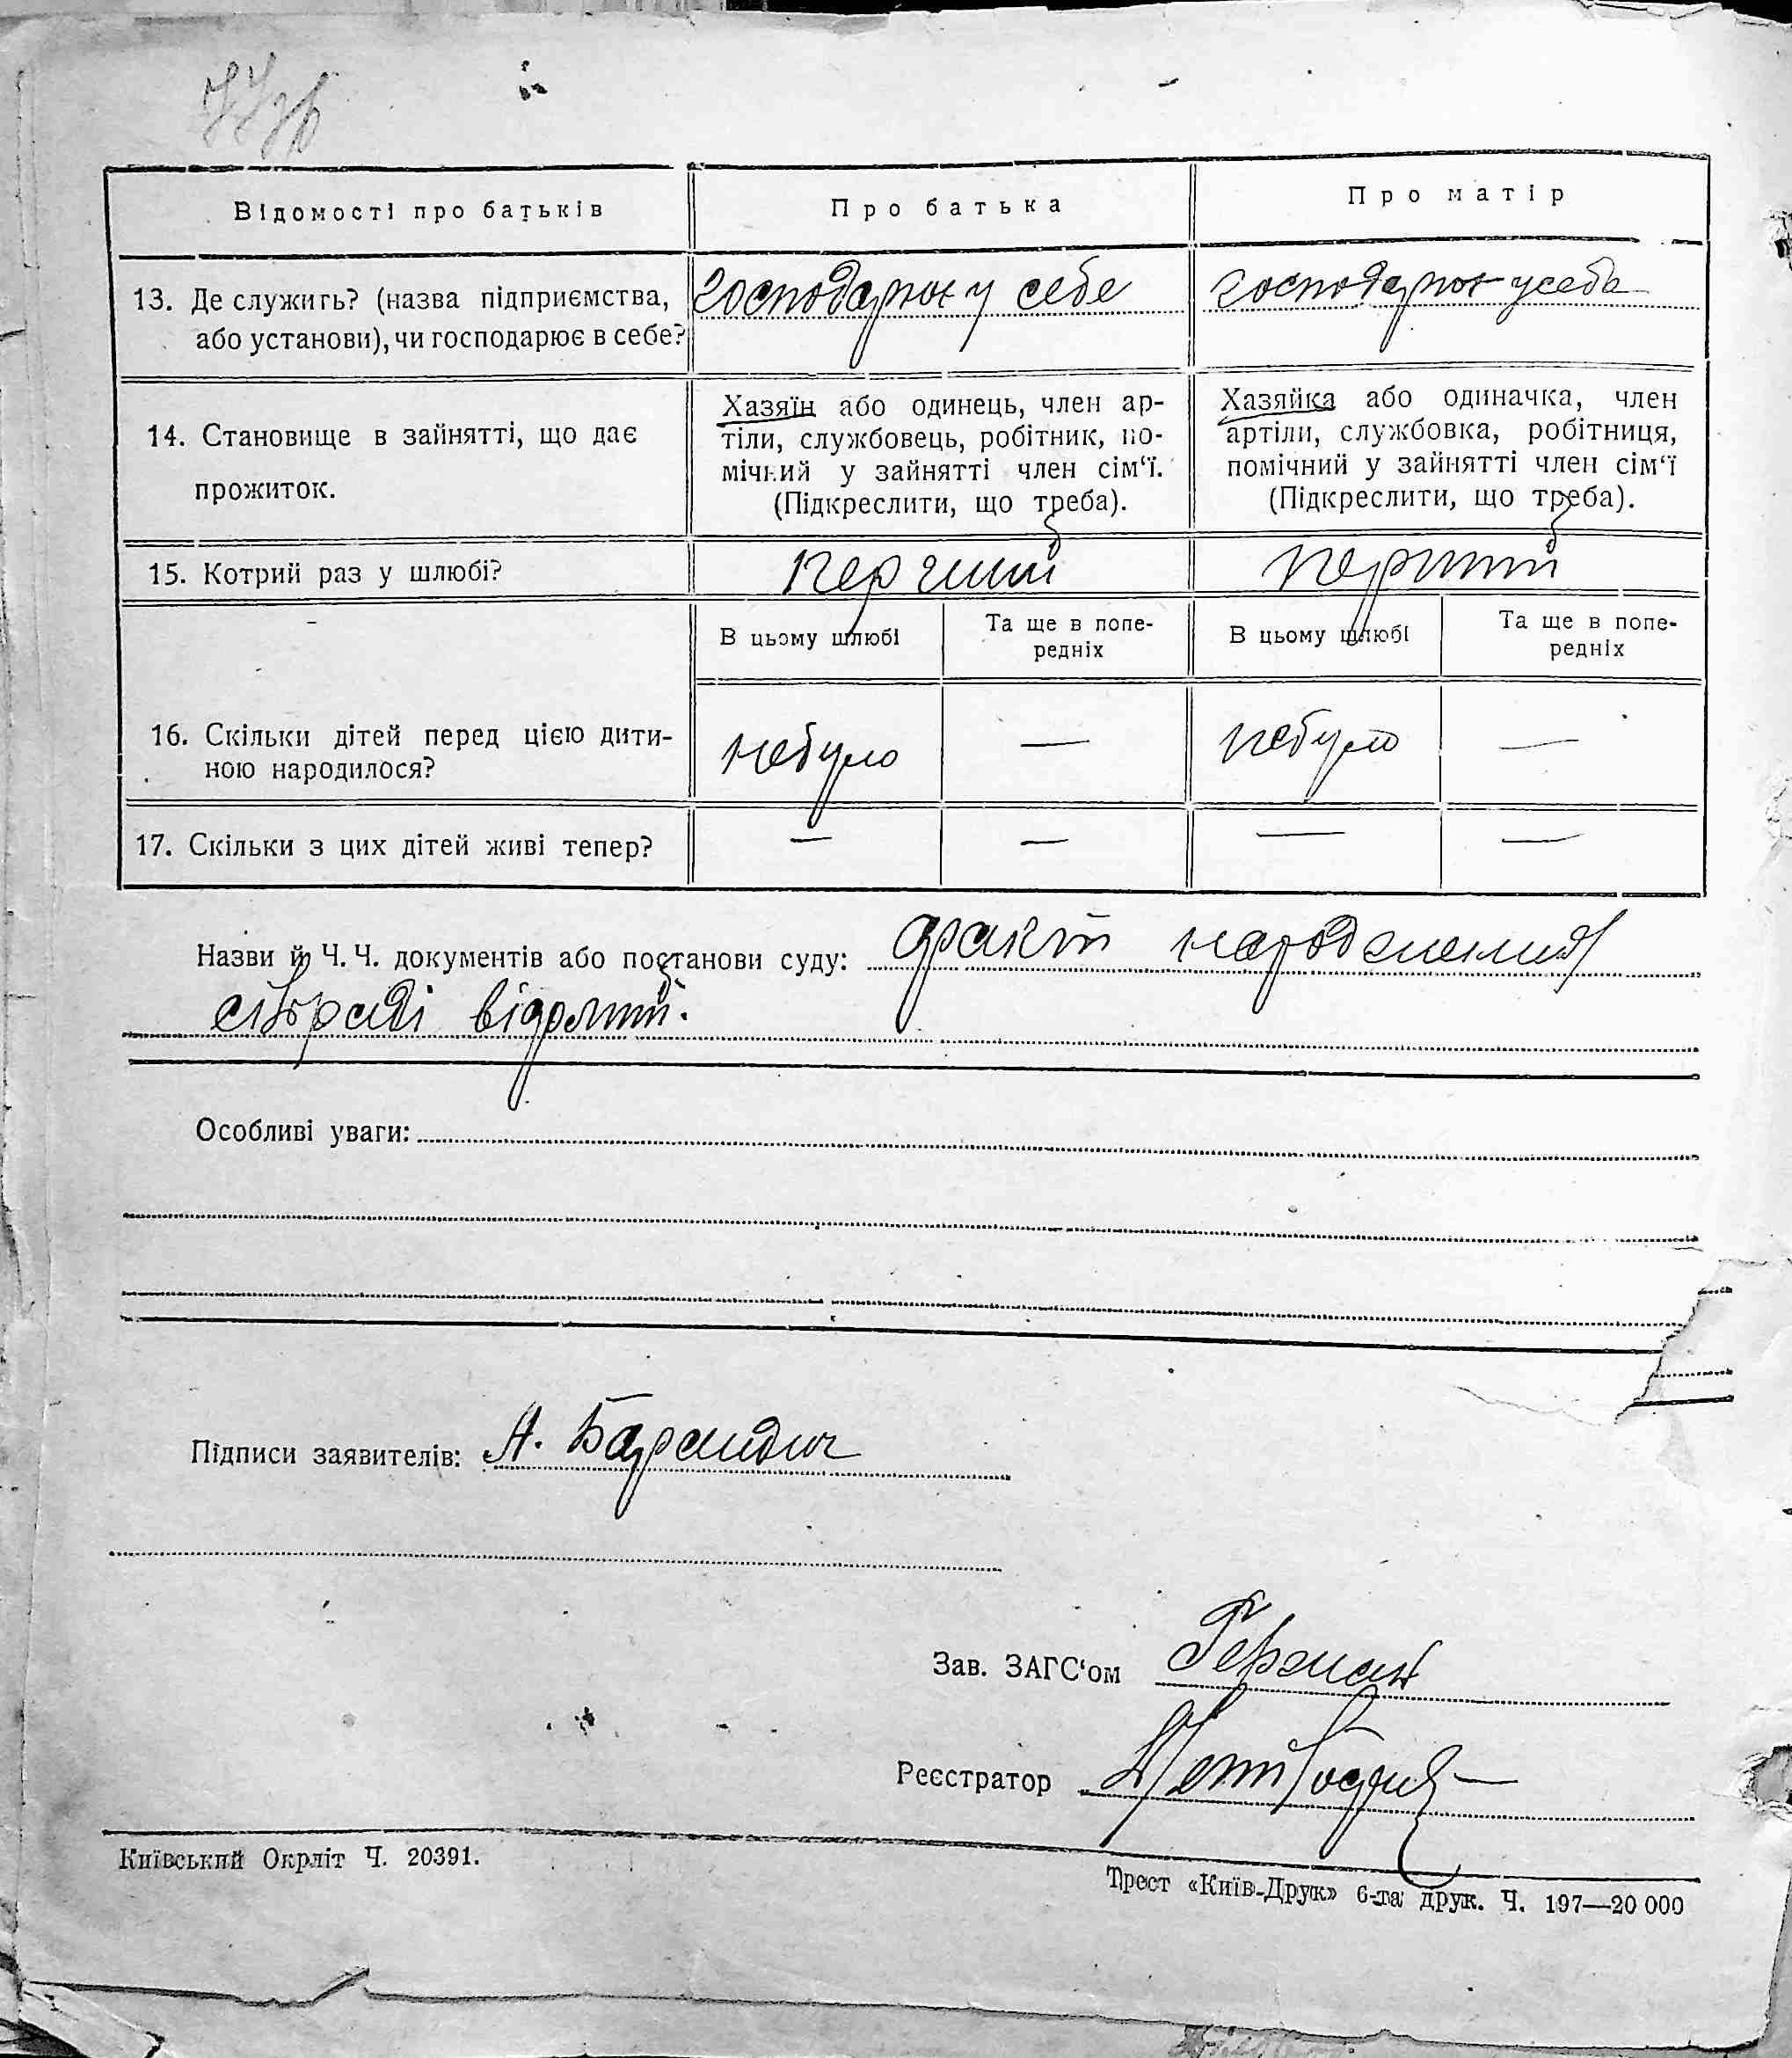 Відомості про батьків
Про батька
Про матір
13. Де служить? (назва підприємства, або установи), чи господарює в себе?
господарює у себе
господарює у себе
14. Становище в зайнятті, що дає прожиток.
Хазяїн або одинець, член ар-
тіли, службовець, робітник, по-
мічний у зайнятті член сім‘ї.
(Підкреслити, що треба).
Хазяйка або одиначка, член
артіли, службовка, робітниця,
помічний у зайнятті член сім‘ї
(Підкреслити, що треба).
15. Котрий раз у шлюбі?
перший
перший
В цьому шлюбі
Та ще в попе-
редніх
В цьому шлюбі
Та ще в попе-
редніх
16. Скільки дітей перед цією дити-
ною народилося?
небуло
—
небуло
—
17. Скільки з цих дітей живі тепер?
—
—
—
—
Назви й Ч. Ч. документів або постанови суду: факт народження
сільраді відомий.
Особливі уваги:
Підписи заявителів: А. Барандич
Зав. ЗАГС‘ом Герман
Реєстратор
Київський Окрліт Ч. 20391.
Трест «Київ-Друк» 6-та друк. Ч. 197—20 000